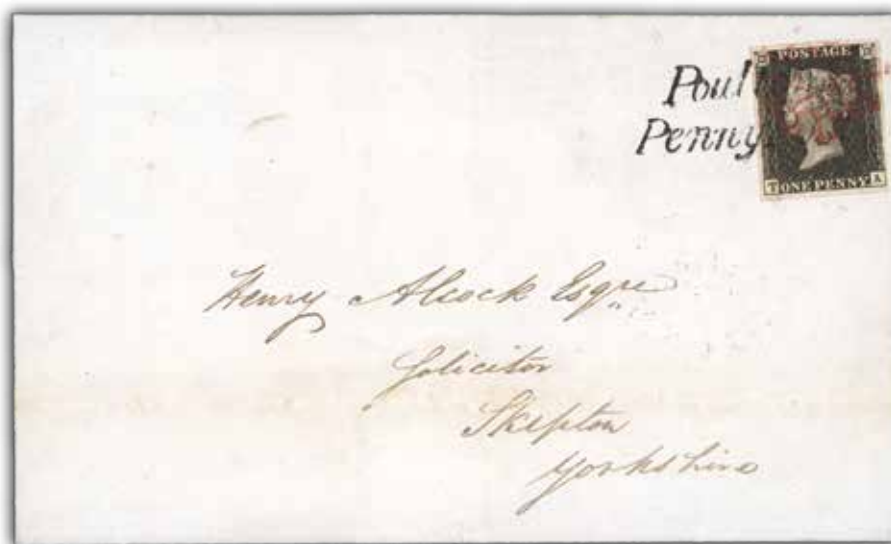 Poul
Penny
POSTAGE
T ONE PENNY A
Henry Alcock Esqre
Solicitor
Skipton
Yorkshire